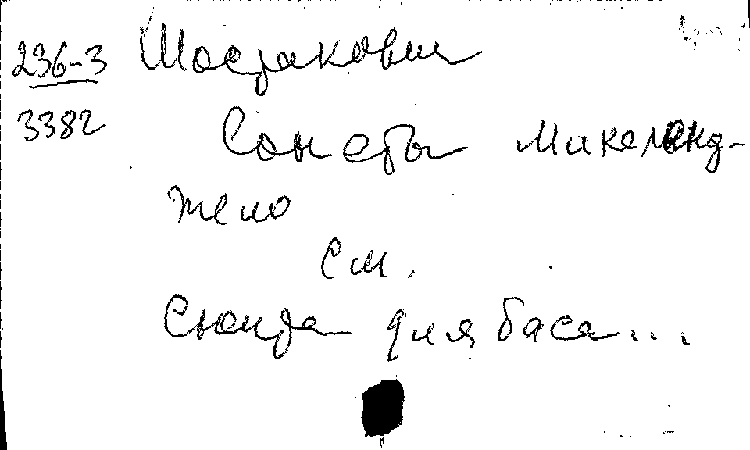 236-3 Шостакович
3382
Сонеты Микеланд-
жело
См.
Сюита для баса...